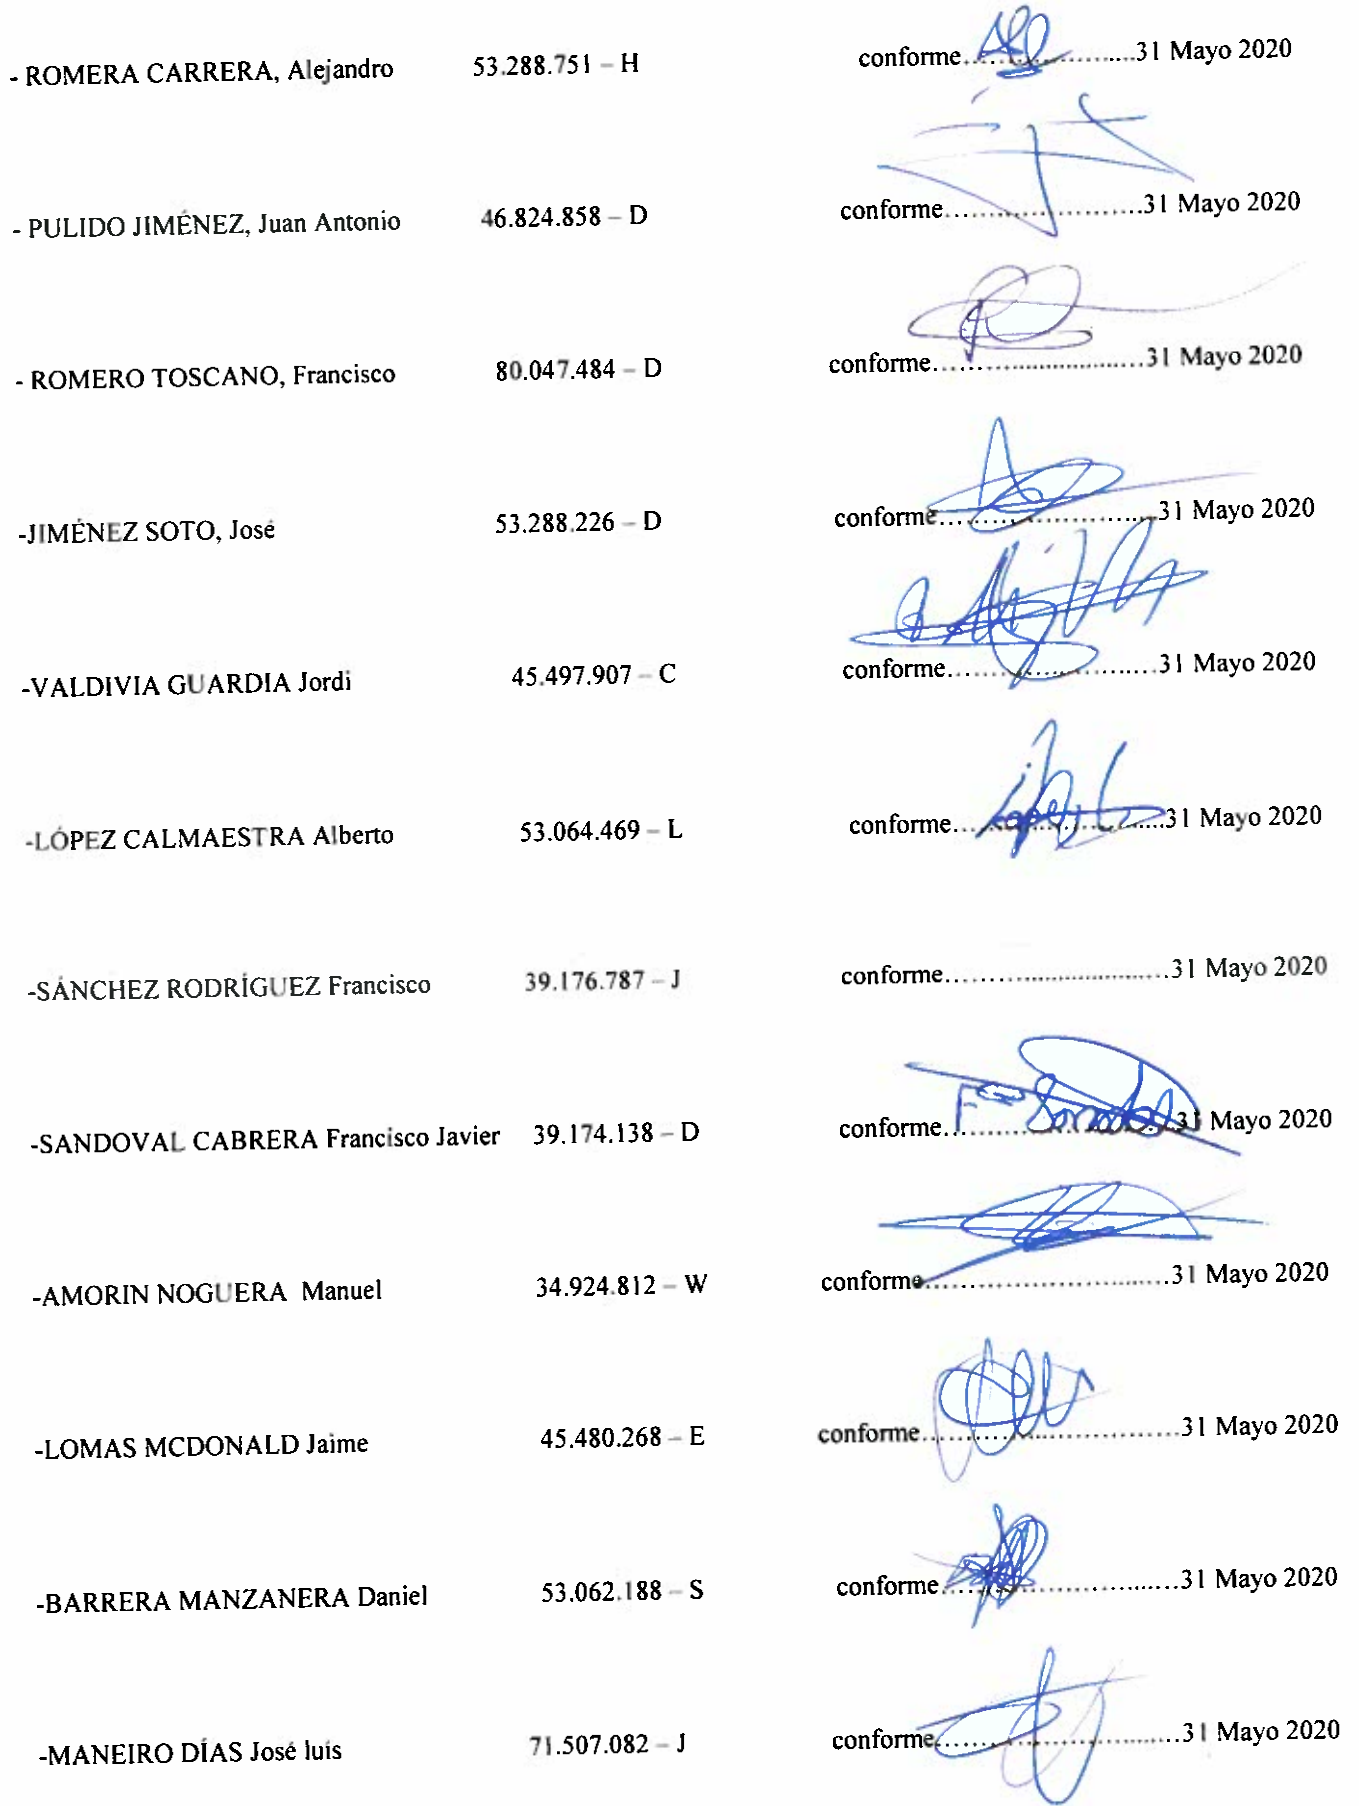 - ROMERA CARRERA, Alejandro 53.288.751 – H conforme..........................31 Mayo 2020
- PULIDO JIMÉNEZ, Juan Antonio 46.824.858 – D conforme..........................31 Mayo 2020
- ROMERO TOSCANO, Francisco 80.047.484 – D conforme..........................31 Mayo 2020
-JIMÉNEZ SOTO, José 53.288.226 – D conforme..........................31 Mayo 2020
-VALDIVIA GUARDIA Jordi 45.497.907 – C conforme..........................31 Mayo 2020
-LÓPEZ CALMAESTRA Alberto 53.064.469 – L conforme..........................31 Mayo 2020
-SÁNCHEZ RODRÍGUEZ Francisco 39.176.787 – J conforme..........................31 Mayo 2020
-SANDOVAL CABRERA Francisco Javier 39.174.138 – D conforme..........................31 Mayo 2020
-AMORIN NOGUERA Manuel 34.924.812 – W conforme..........................31 Mayo 2020
-LOMAS MCDONALD Jaime 45.480.268 – E conforme..........................31 Mayo 2020
-BARRERA MANZANERA Daniel 53.062.188 – S conforme..........................31 Mayo 2020
-MANEIRO DÍAS José luis 71.507.082 – J conforme..........................31 Mayo 2020